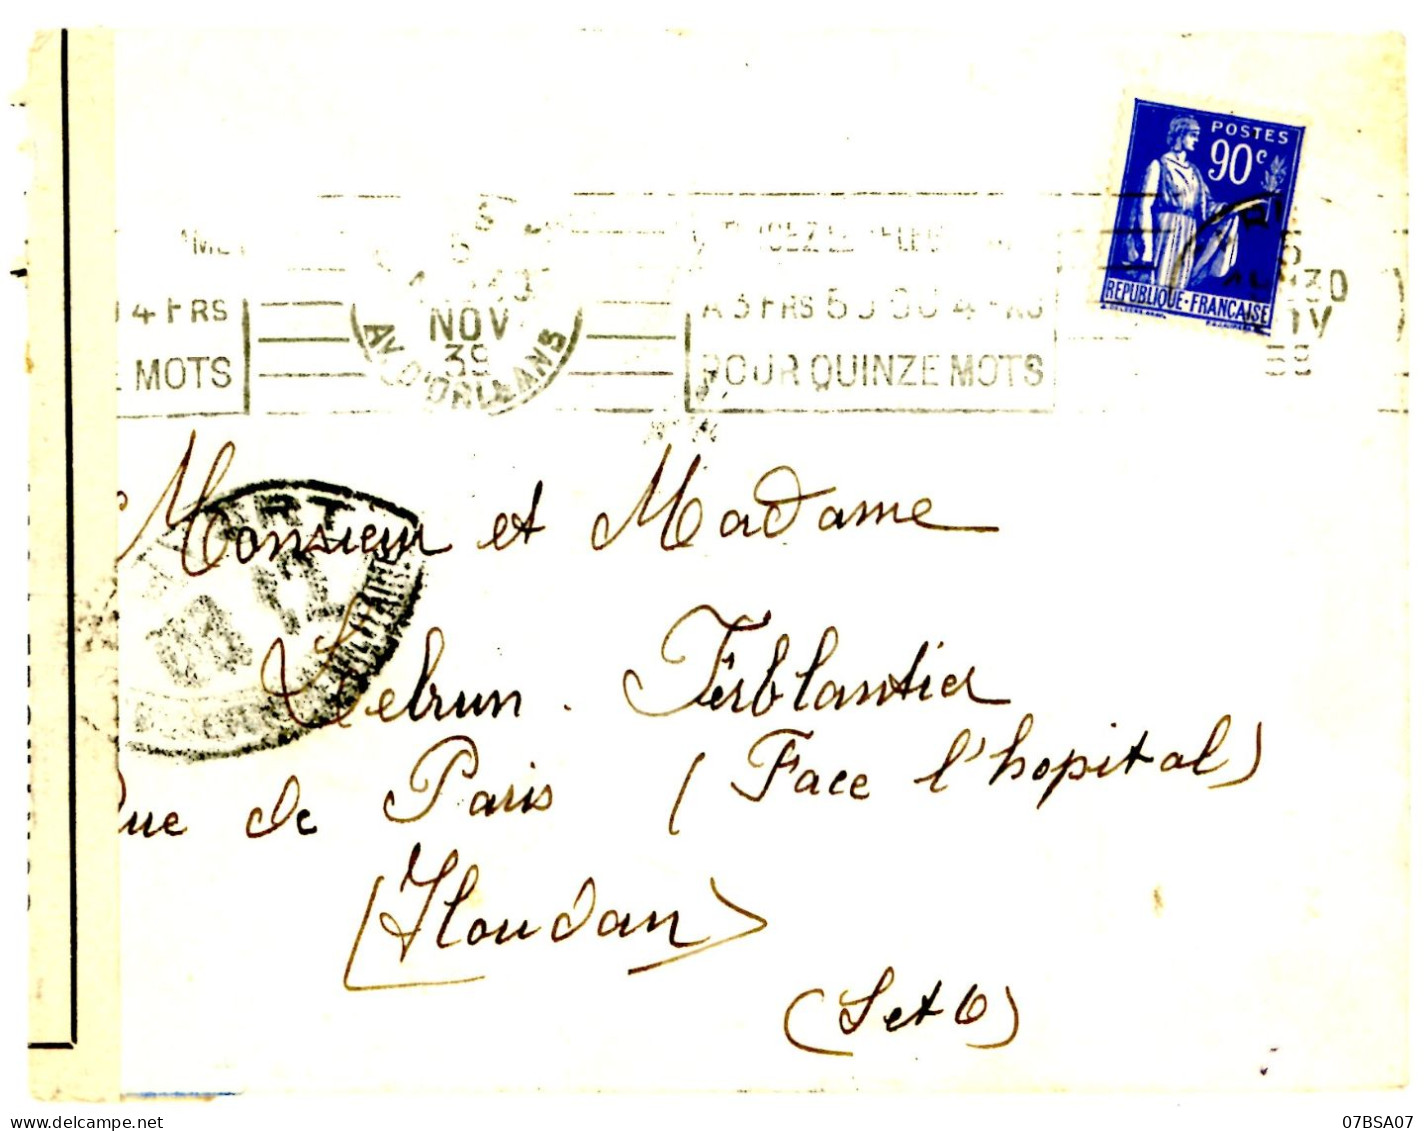 POSTES
90c
REPUBLIQUE-FRANÇAISE
4 FRS
MOTS
NOV
39
AV. D'ORLEANS
A 3 FRS 50 OU 4 FRS
POUR QUINZE MOTS
Monsieur et Madame
Lebrun. Ferblantier
Rue de Paris (Face l'hopital)
(Houdan)
(S et O)
07BSA07